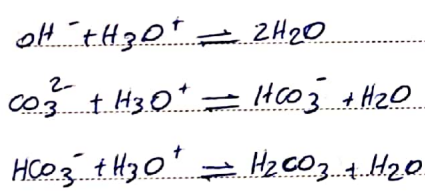 OH⁻ + H3O⁺ ⇌ 2H2O
CO3²⁻ + H3O⁺ ⇌ HCO3⁻ + H2O
HCO3⁻ + H3O⁺ ⇌ H2CO3 + H2O